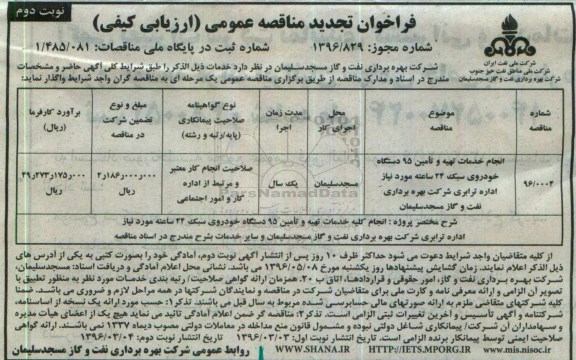 نوبت دوم
فراخوان تجدید مناقصه عمومی (ارزیابی کیفی)
شماره مجوز: ۱۳۹۶/۸۲۹ شماره ثبت در پایگاه ملی مناقصات: ۱/۴۸۵/۰۸۱
شرکت ملی نفت ایران
شرکت ملی مناطق نفت خیز جنوب
شرکت بهره برداری نفت و گاز مسجدسلیمان
شرکت بهره برداری نفت و گاز مسجدسلیمان در نظر دارد خدمات ذیل الذکر را طبق شرایط کلی آگهی حاضر و مشخصات
مندرج در اسناد و مدارک مناقصه از طریق برگزاری مناقصه عمومی یک مرحله ای به مناقصه گران واجد شرایط واگذار نماید:
شماره مناقصه
موضوع مناقصه
محل اجرای کار
مدت زمان اجرا
نوع گواهینامه صلاحیت پیمانکاری (پایه/رتبه و رشته)
مبلغ و نوع تضمین شرکت در مناقصه
برآورد کارفرما (ریال)
۹۶/۰۰۰۲
انجام خدمات تهیه و تأمین ۹۵ دستگاه
خودروی سبک ۲۴ ساعته مورد نیاز
اداره ترابری شرکت بهره برداری
نفت و گاز مسجدسلیمان
مسجدسلیمان
یک سال
صلاحیت انجام کار معتبر
و مرتبط از اداره
کار و امور اجتماعی
۲٫۱۸۶٫۰۰۰٫۰۰۰
ریال
ریال
شرح مختصر پروژه : انجام کلیه خدمات تهیه و تأمین ۹۵ دستگاه خودروی سبک ۲۴ ساعته مورد نیاز
اداره ترابری شرکت بهره برداری نفت و گاز مسجدسلیمان و سایر خدمات بشرح مندرج در اسناد مناقصه
از کلیه متقاضیان واجد شرایط دعوت می شود حداکثر ظرف ۱۰ روز پس از انتشار آگهی نوبت دوم، آمادگی خود را بصورت کتبی به یکی از آدرس های
ذیل الذکر اعلام نمایند. زمان گشایش پیشنهادها روز یکشنبه مورخ ۱۳۹۶/۰۵/۰۸ می باشد. نشانی محل اعلام آمادگی و دریافت اسناد: مسجدسلیمان،
شرکت بهره برداری نفت و گاز، امور حقوقی و قراردادها، اتاق ب ۲۰. همزمان ارائه گواهی صلاحیت / رتبه بندی خدمات مورد نظر به منظور تطبیق با
تصویر آن الزامی و ارائه معرفی نامه و کارت ملی برای متقاضیان شرکت در مناقصه و نمایندگان شرکتها در همه مراحل لازم و ضروری می باشد. ضمنا
کلیه شرکتهای متقاضی ملزم به ارائه صورتهای مالی حسابرسی شده مربوط به سال قبل می باشند. تذکر۱: حسب مورد ارائه یک نسخه از اساسنامه،
شرکتنامه و آگهی تأسیس و آخرین تغییرات ثبتی الزامی است. تذکر۲: مناقصه گر ضمن اعلام آمادگی تائید می نماید هیچ یک از اعضای هیأت مدیره
و سهامداران آن شرکت/ پیمانکاری شاغل دولتی نبوده و مشمول قانون منع مداخله در معاملات دولتی مصوب دیماه ۱۳۳۷ نمی باشند. ارائه گواهی
صلاحیت ایمنی توسط پیمانکار برنده الزامی است. تاریخ انتشار نوبت اول: ۱۳۹۶/۰۳/۰۳ تاریخ انتشار نوبت دوم: ۱۳۹۶/۰۳/۰۴
WWW.SHANA.IR HTTP://IETS.MPORG.IR www.mis.nisoc.ir روابط عمومی شرکت بهره برداری نفت و گاز مسجدسلیمان